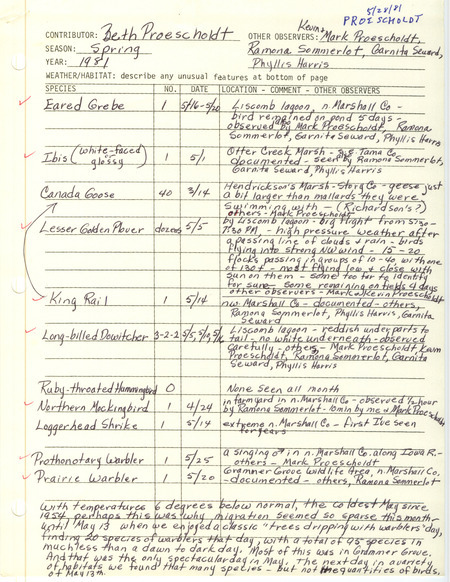 5/28/81
PROESCHOLDT
CONTRIBUTOR: Beth Proescholdt OTHER OBSERVERS: Kevin & Mark Proescholdt,
SEASON: Spring Ramona Sommerlot, Garnita Seward,
YEAR: 1981 Phyllis Harris
WEATHER/HABITAT: describe any unusual features at bottom of page
SPECIES NO. DATE LOCATION - COMMENT - OTHER OBSERVERS
Eared Grebe 1 5/16-5/20 Liscomb lagoon, n. Marshall Co -
bird remained on pond 5 days -
observed by Mark Proescholdt, Ramona
Sommerlot, Garnita Seward, Phyllis Harris
Ibis (white-faced or glossy) 1 5/1 Otter Creek Marsh - Tama Co
documented - seen by Ramona Sommerlot,
Garnita Seward, Phyllis Harris
Canada Goose 40 3/14 Hendrickson's Marsh - Story Co - geese just
a bit larger than mallards they were
swimming with - (Richardson's?)
others - Mark Proescholdt
Lesser Golden Plover dozens 5/5 by Liscomb lagoon - big flight from 5:30-
7:30 PM - high pressure weather after
a passing line of clouds & rain - birds
flying into strong NW wind - 15-20
flocks passing in groups of 10-40, with one
of 130+ - most flying low & close with
sun on them - some too far to identify
for sure - some remaining on fields 4 days
other observers - Mark & Kevin Proescholdt
King Rail 1 5/14 nw Marshall Co - documented - others,
Ramona Sommerlot, Phyllis Harris, Garnita
Seward
Long-billed Dowitcher 3-2-2 Liscomb lagoon - reddish underparts to
tail - no white underneath - observed
carefully - others - Mark Proescholdt, Kevin
Proescholdt, Ramona Sommerlot, Garnita
Seward, Phyllis Harris
Ruby-throated Hummingbird 0 None seen all month
Northern Mockingbird 1 4/24 in farmyard in n. Marshall Co - observed 1/2 hour
by Ramona Sommerlot - 10 min by me & Mark Proescholdt
Loggerhead Shrike 1 5/14 extreme n. Marshall Co - first I've seen
for years
Prothonotary Warbler 1 5/25 a singing ♂ in n. Marshall Co. along Iowa R. -
others - Mark Proescholdt
Prairie Warbler 1 5/20 Grammer Grove Wildlife Area, n. Marshall Co.
- documented - others, Ramona Sommerlot
With temperatures 6 degrees below normal, the coldest May since
1954 perhaps this was why migration seemed so sparse this month
until May 13 when we enjoyed a classic "trees dripping with warblers" day,
finding 20 species of warblers that day, with a total of 95 species in
much less than a dawn to dark day. Most of this was in Grammer Grove.
And that was the only spectacular day in May. The next day in a variety
of habitats we found that many species - but not the quantities of birds
of May 13th.